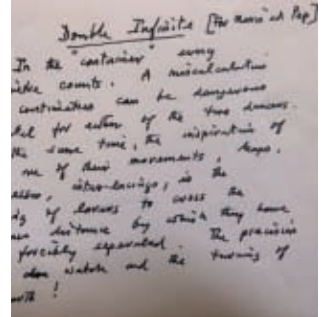 Double Infinite [For Marie et Pap]
In the "container" every
counts. A miscalculation
can be dangerous
for either of the two dancers.
the same time, the inspiration of
one of their movements, steps,
inter-lacings, is the
of lovers to cross the
distance by which they have
forcibly separated. The precision
watch and the turning of
!